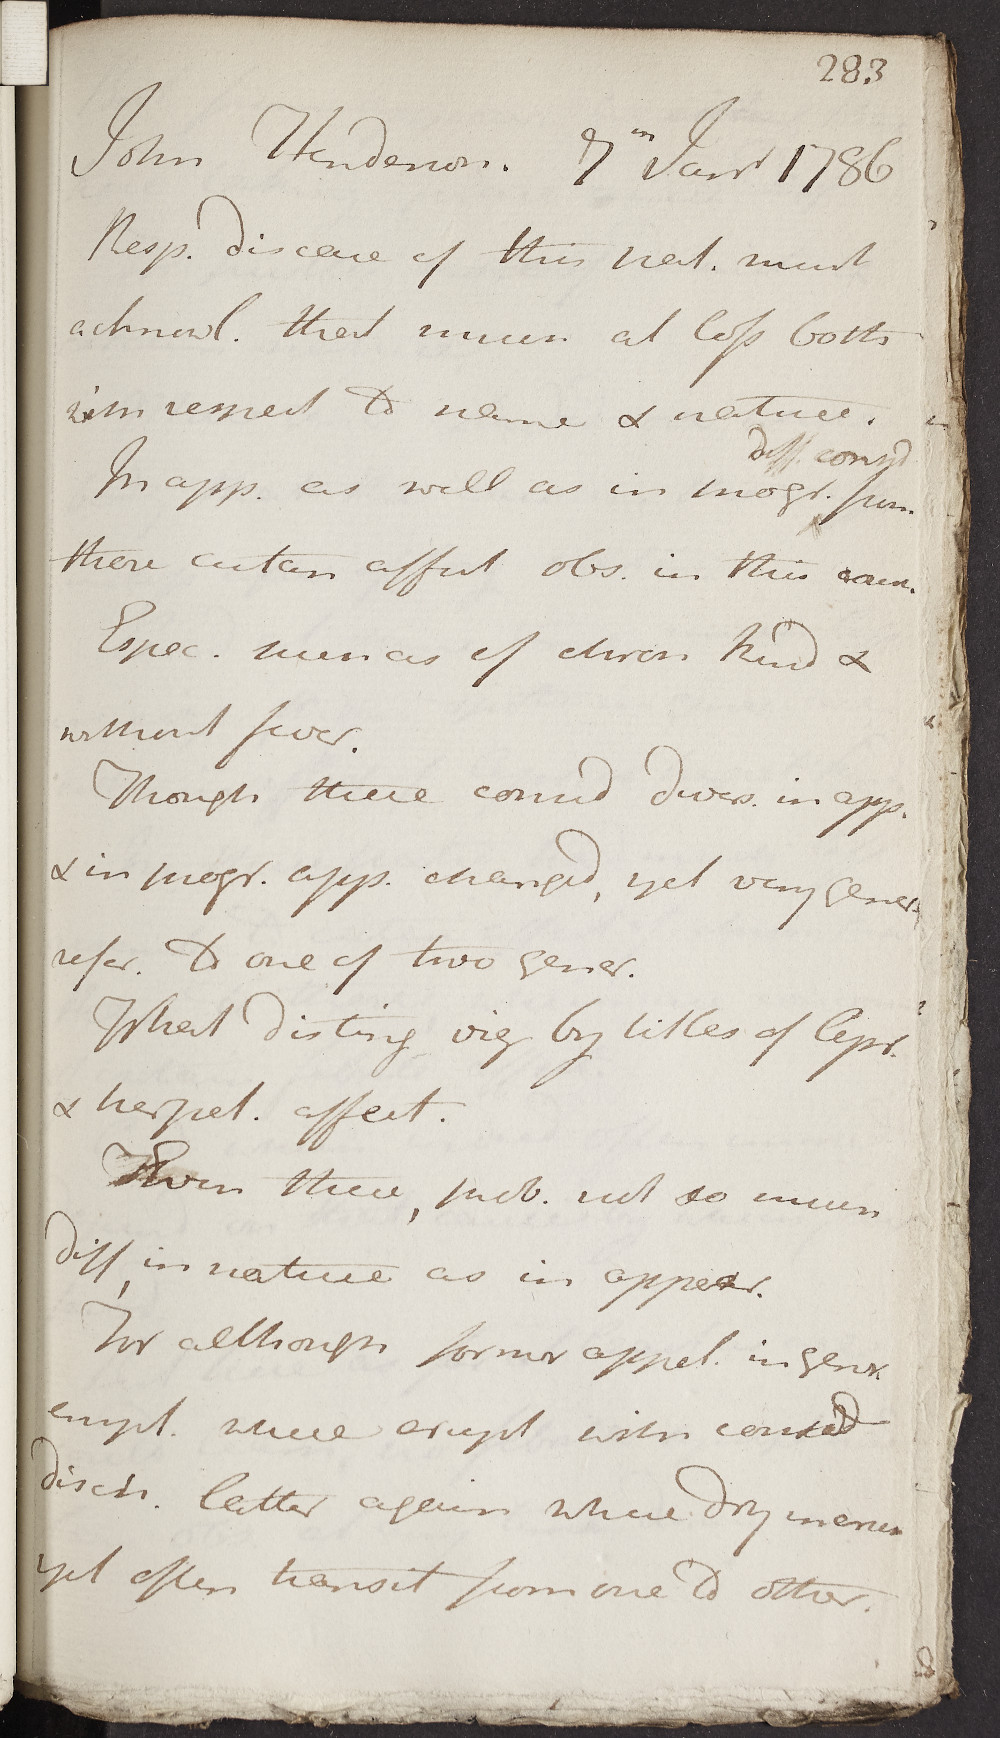 283
John Henderson. 7th Janr 1786
Resp. disease of this pat. must
acknowl. that much at loss both
with respect to name & nature.
diff. consid
In app. as well as in progr. from
there cutan affect obs. in this
Espec. much as of chron kind &
without fever.
Though these consid divers. in app.
& in progr. app. changed, yet very gener.
refer. to one of two gener.
What disting viz by titles of lepr.
& herpet. affect.
Even these, prob. not so much
diff, in nature as in appear.
For although former appel. in gener
empl. where erupt with consid
disch. latter again where dry
yet often transit from one to other.